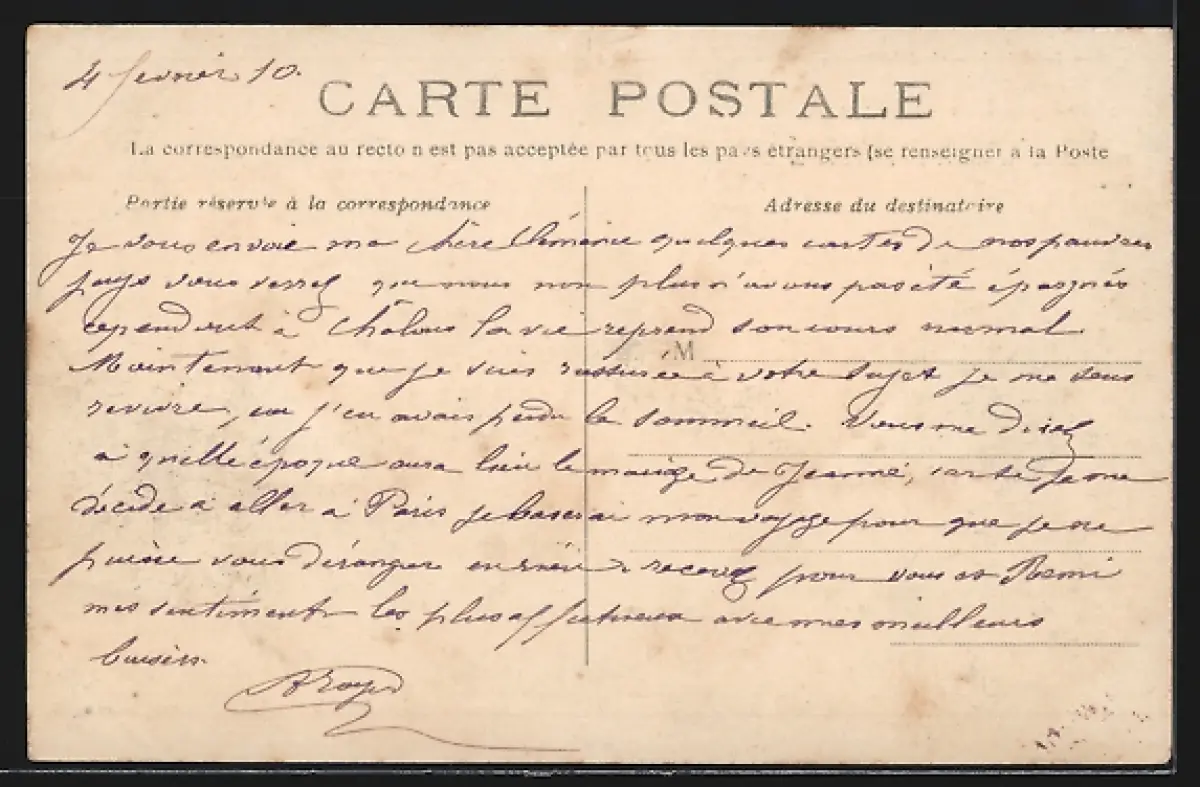 4 février 10.
CARTE POSTALE
La correspondance au recto n'est pas acceptée par tous les pays étrangers (se renseigner à la Poste
Partie réservée à la correspondance
Adresse du destinataire
Je vous envoie ma chère Clémence quelques cartes de nos pauvres
pays vous verrez que nous non plus n'avons pas été épargnés
cependant à Châlons la vie reprend son cours normal
M
Maintenant que je suis rassurée à votre sujet je me sens
revivre, car j'en avais perdu le sommeil. Vous me direz
à quelle époque aura lieu le mariage de Jeanne, car si je me
décide à aller à Paris je baserai mon voyage pour que je ne
puisse vous déranger en rien recevez pour vous et Remi
mes sentiments les plus affectueux avec mes meilleurs
baisers.